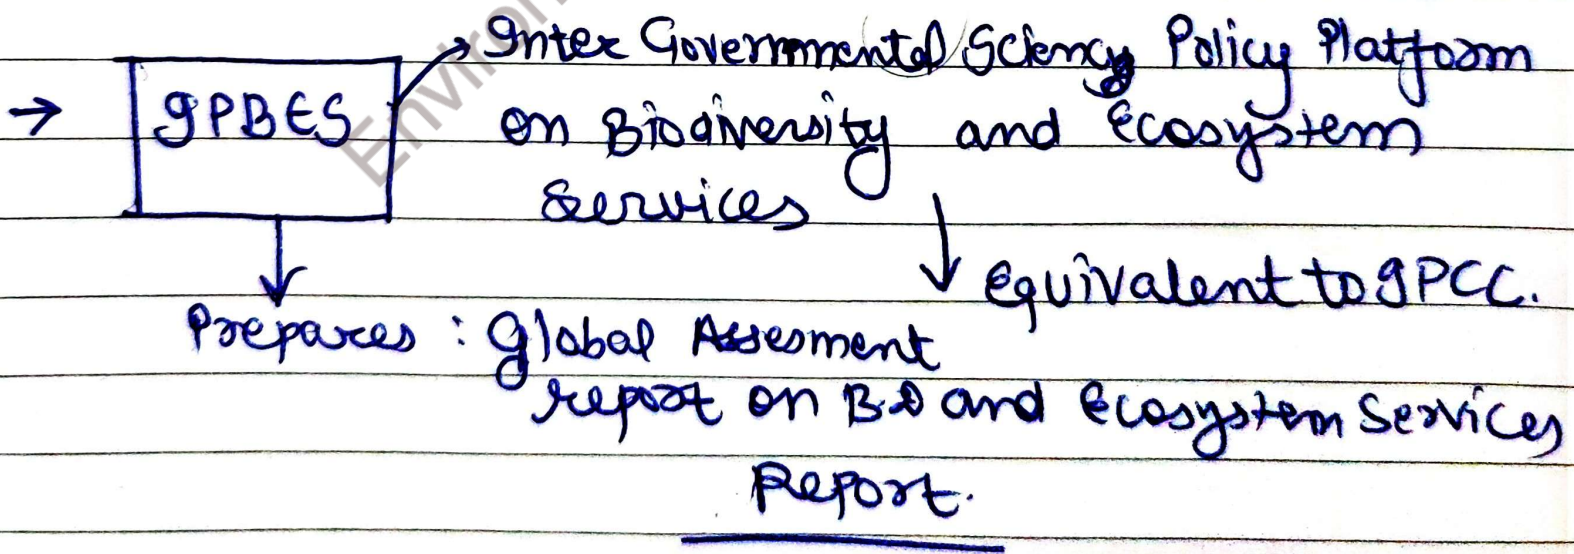 → IPBES → Inter Governmental Science Policy Platform
on Biodiversity and Ecosystem
Services
↓ Equivalent to IPCC.
Prepares : Global Assesment
report on B.D and Ecosystem Services
Report.
Environ